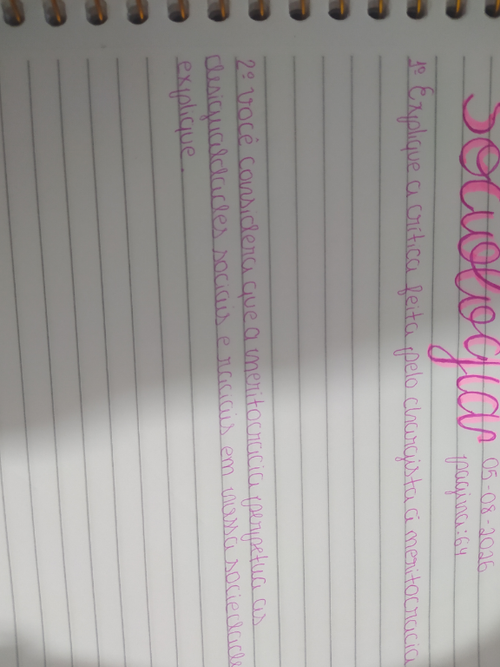 Sociologia
05-08-2026
pagina:64
1º Explique a crítica feita pelo chargista a meritocracia
2º Você considera que a meritocracia perpetua as
desigualdades sociais e raciais em nossa sociedade
explique